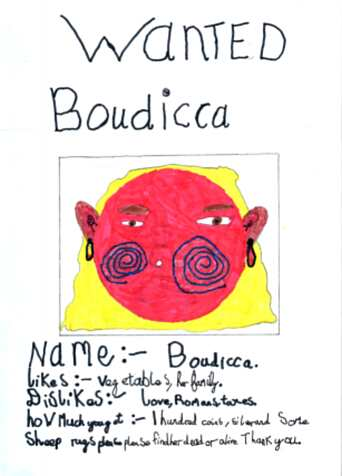 WANTED
Boudicca
NaMe:- Boudicca.
likes:- vegetables, her family.
DisliKes:- Love, Romans, taxes.
hoV Much you get:- 1 hundred coins, silver and Some
Sheep rugs please please find her dead or alive Thank you.